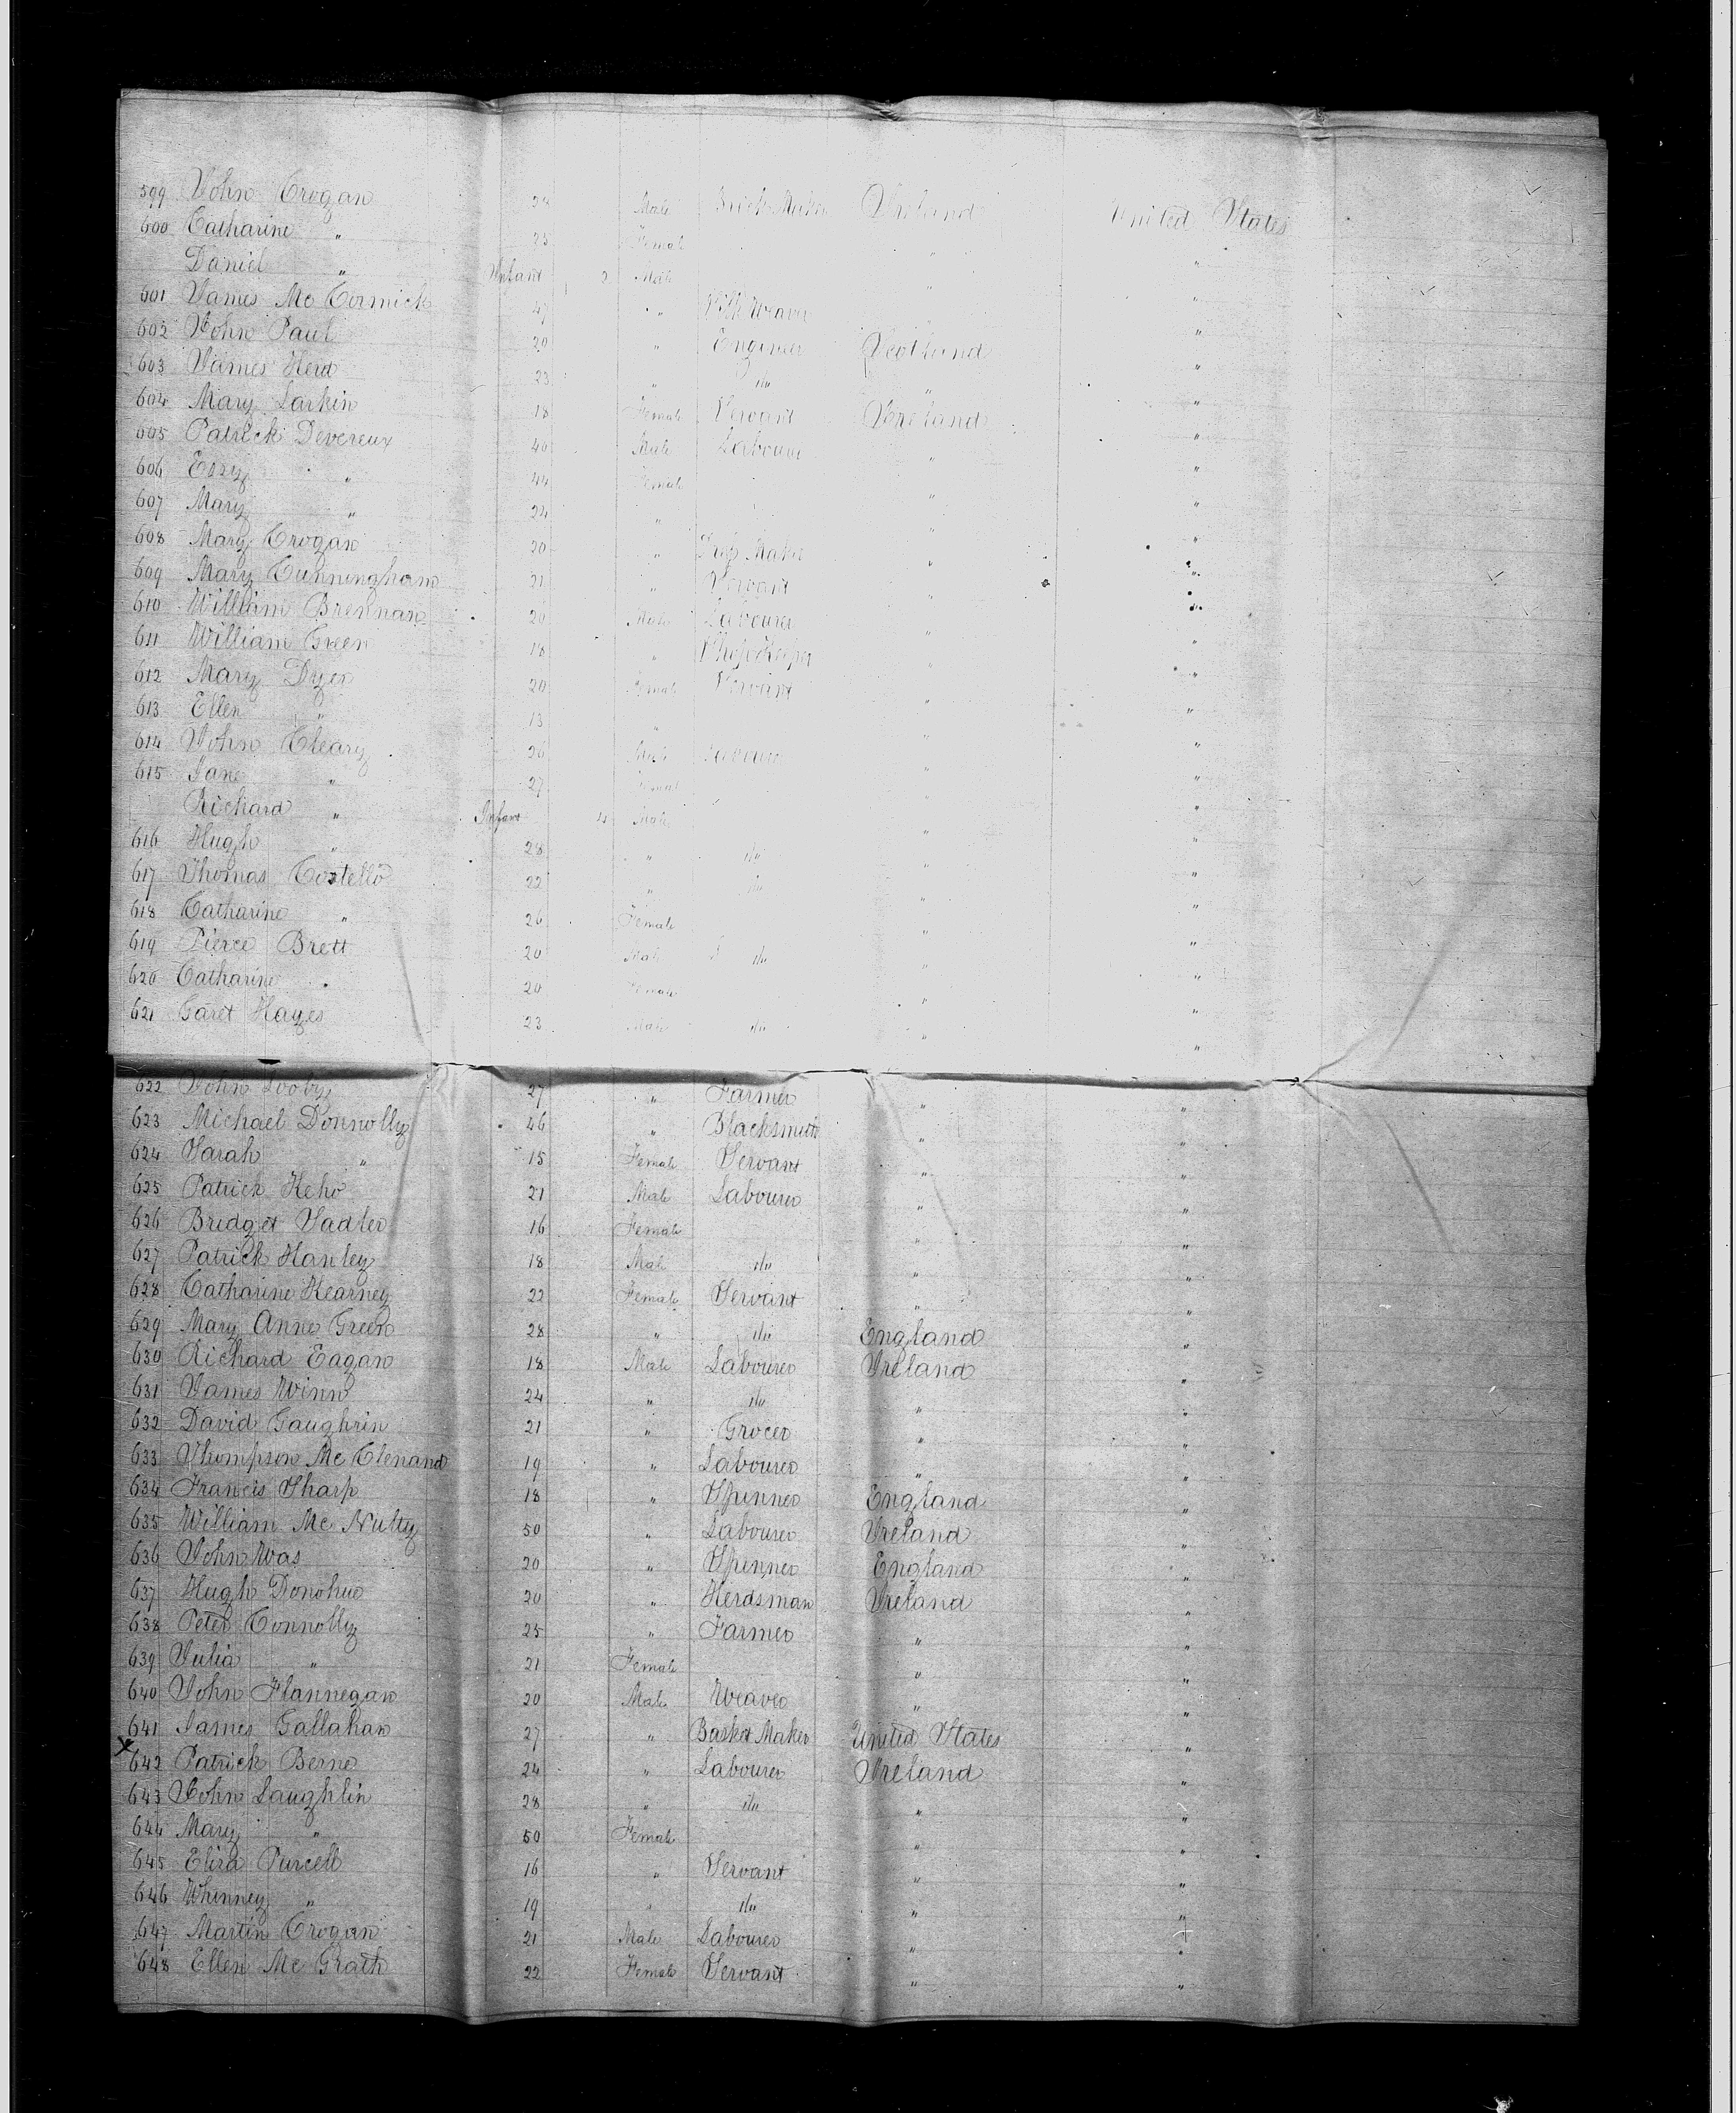 599 John Crogan 28 Male Brick Maker Ireland United States
600 Catharine " 25 Female " "
Daniel " Infant Male " "
601 James Mc Cormick 47 " Silk Weaver " "
602 John Paul 20 " Engineer Scotland "
603 James Herd 23 " do " "
604 Mary Larkin 18 Female Servant Ireland "
605 Patrick Devereux 40 Male Labourer " "
606 Essy " 44 Female " "
607 Mary " 24 " " "
608 Mary Crogan 20 " Maker " "
609 Mary Cunningham 21 " Servant " "
610 William Brennan 20 Male Labourer " "
611 William Green 18 " Shop Keeper " "
612 Mary Dyer 20 Female Servant " "
613 Ellen " 13 " " "
614 John Cleary 26 Male Labourer " "
615 Jane " 27 Female " "
Richard " Infant 11 Male " "
616 Hugh " 28 " do " "
617 Thomas Costello 22 " do " "
618 Catharine " 26 Female " "
619 Pierce Brett 20 Male do " "
620 Catharine " 20 Female " "
621 Garet Hayes 23 Male do " "
622 John Looby 27 " Farmer " "
623 Michael Donnolly 46 " Blacksmith " "
624 Sarah " 15 Female Servant " "
625 Patrick Keho 21 Male Labourer " "
626 Bridget Sadler 16 Female " "
627 Patrick Hanley 18 Male do " "
628 Catharine Kearney 22 Female Servant " "
629 Mary Anne Green 28 " do England "
630 Richard Eagan 18 Male Labourer Ireland "
631 James Winn 24 " do " "
632 David Gaughrin 21 " Grocer " "
633 Thompson Mc Clenand 19 " Labourer " "
634 Francis Sharp 18 " Spinner England "
635 William Mc Nutty 50 " Labourer Ireland "
636 John Was 20 " Spinner England "
637 Hugh Donohue 20 " Herdsman Ireland "
638 Peter Connolly 25 " Farmer " "
639 Julia " 21 Female " "
640 John Flannegan 20 Male Weaver " "
641 James Gallahan 27 " Basket Maker United States "
x 642 Patrick Berne 24 " Labourer Ireland "
643 John Laughlin 28 " do " "
644 Mary " 50 Female " "
645 Eliza Purcell 16 " Servant " "
646 Whinney " 19 " do " "
647 Martin Crogan 21 Male Labourer " "
648 Ellen Mc Grath 22 Female Servant " "